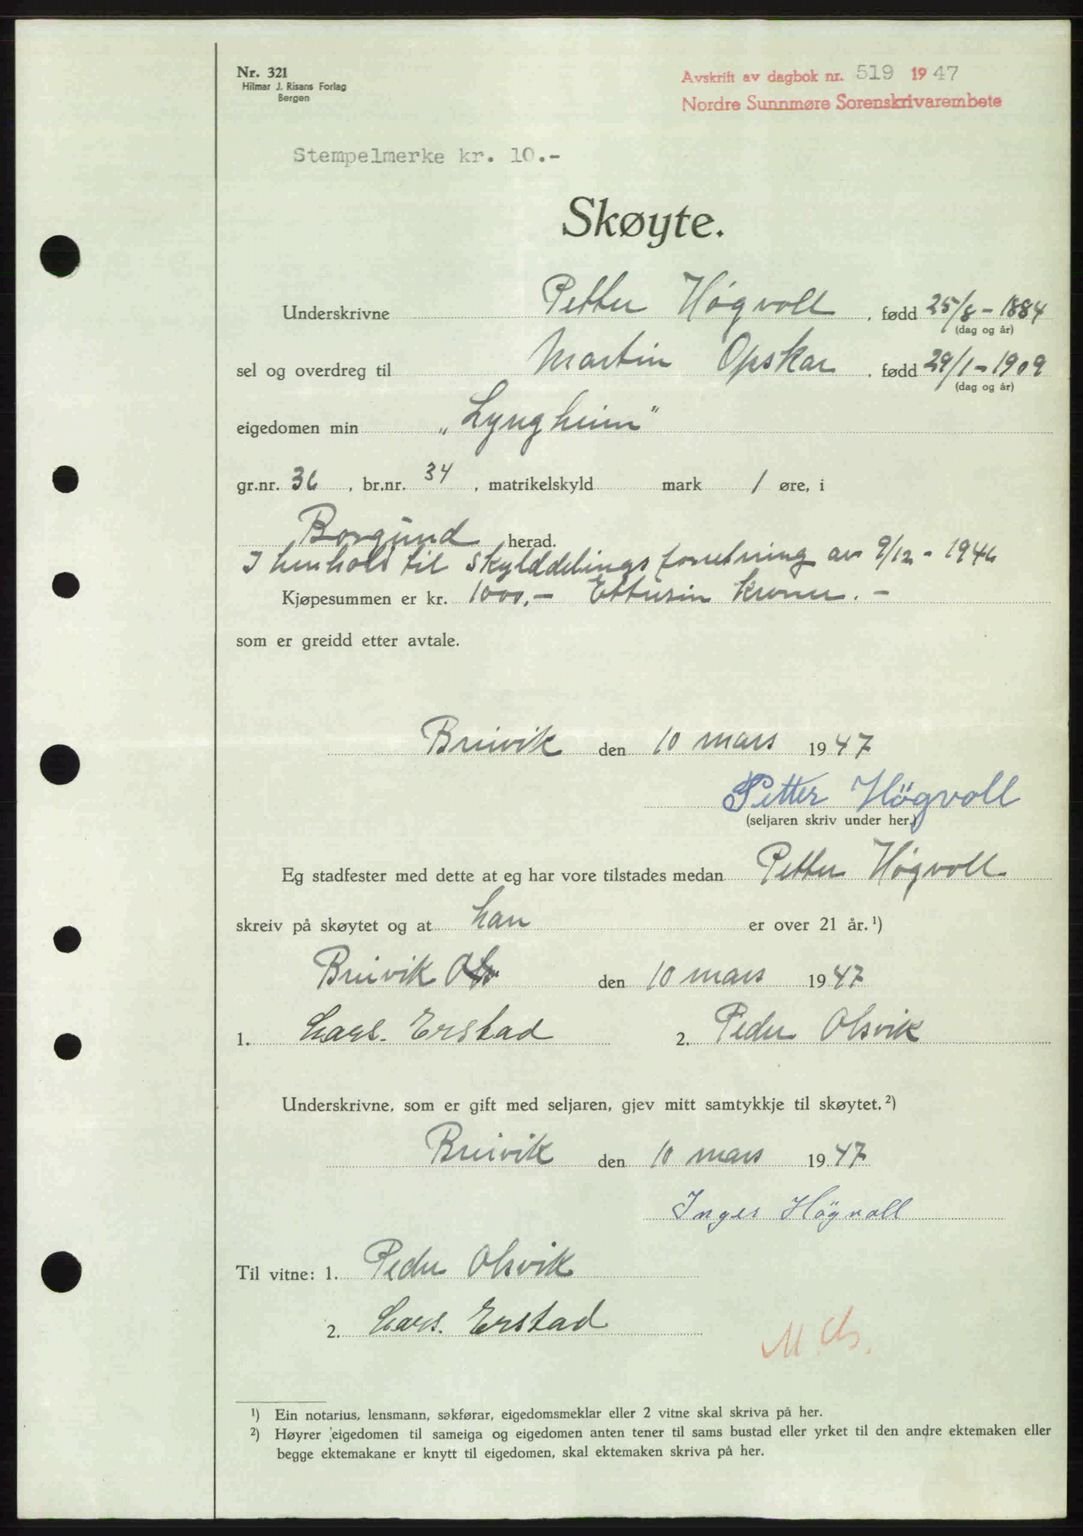 Nr. 321
Hilmar J. Risans Forlag
Bergen
Avskrift av dagbok nr. 519 1947
Nordre Sunnmøre Sorenskrivarembete
Stempelmerke kr. 10.-
Skøyte.
Underskrivne Petter Høgvoll, fødd 25/8-1884
(dag og år)
sel og overdreg til Martin Opskar, fødd 29/1-1909
(dag og år)
eigedomen min „Lyngheim"
gr.nr. 36, br.nr. 34, matrikelskyld mark 1 øre, i
Borgund herad.
I henhold til skylddelingsforretning av 9/12-1946
Kjøpesummen er kr. 1000,- Ettusin kroner.-
som er greidd etter avtale.
Breivik den 10 mars 1947
Petter Högvoll
(seljaren skriv under her.)
Eg stadfester med dette at eg har vore tilstades medan Petter Høgvoll
skreiv på skøytet og at han er over 21 år.¹)
Breivik den 10 mars 1947
1. Lars. Erstad 2. Peder Olsvik
Underskrivne, som er gift med seljaren, gjev mitt samtykkje til skøytet.²)
Breivik den 10 mars 1947
Inger Högvoll
Til vitne: 1. Peder Olsvik
2. Lars. Erstad
¹) Ein notarius, lensmann, sakførar, eigedomsmeklar eller 2 vitne skal skriva på her.
²) Høyrer eigedomen til sameiga og eigedomen anten tener til sams bustad eller yrket til den andre ektemaken eller
begge ektemakane er knytt til eigedomen, skal ektemaken skriva på her.